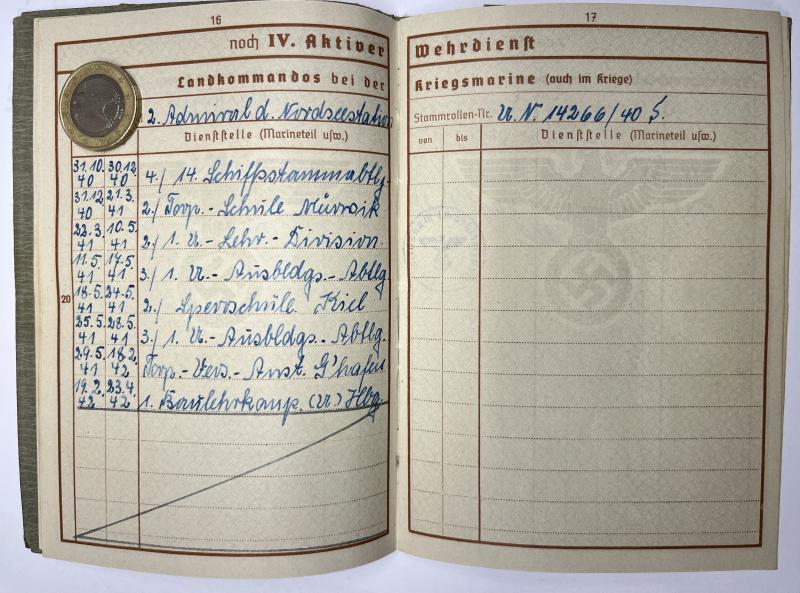 16
noch IV. Aktiver
Landkommandos bei der
2. Admiral d. Nordseestation
Dienststelle (Marineteil usw.)
31.10. 40 30.12. 40 4./ 14. Schiffsstammabtlg.
31.12. 40 21.3. 41 2./ Torp.-Schule Mürwik
22.3. 41 10.5. 41 2./ 1. U.-Lehr.-Division.
11.5. 41 17.5. 41 3./ 1. U.-Ausbldgs.-Abtlg.
18.5. 41 24.5. 41 2./ Sperrschule Kiel
25.5. 41 28.5. 41 3./ 1. U.-Ausbldgs.-Abtlg.
29.5. 41 18.2. 42 Torp.-Vers.-Anst. G'hafen
19.2. 42 23.4. 42 1. Baulehrkomp. (U.) Hbg.
20
17
Wehrdienst
Kriegsmarine (auch im Kriege)
Stammrollen-Nr. U. N. 14266/40 S.
von bis Dienststelle (Marineteil usw.)